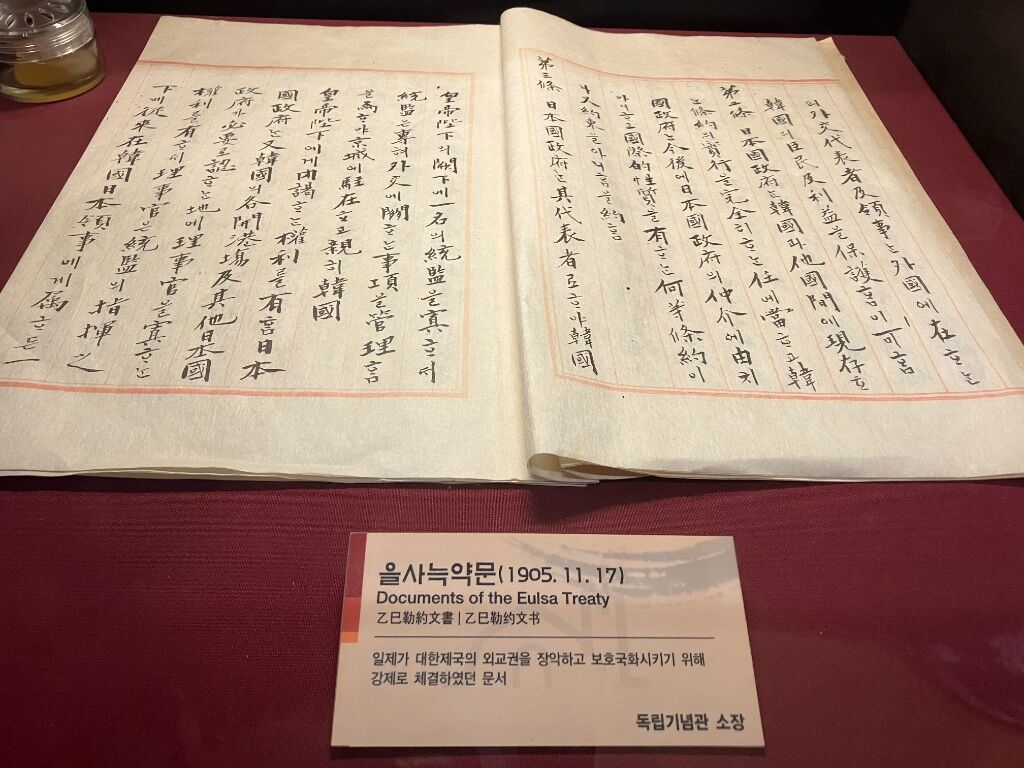 의外交代表者及領事는外國에在하는
韓國의臣民及利益을保護함이可함
第二條 日本國政府는韓國과他國間에現存한
條約의實行을完全히하는任에當하고韓
國政府는今後에日本國政府의仲介에由치
아니하고國際的性質을有하는何等條約이
나又約束을아니함을約함
第三條 日本國政府는其代表者로하야韓國
皇帝陛下의闕下에一名의統監을寘하되
統監은專혀外交에關하는事項을管理함
을爲하야京城에駐在하고親히韓國
皇帝陛下에게內謁하는權利를有함日本
國政府는又韓國의各開港場及其他日本國
政府가必要로認하는地에理事官을寘하는
權利를有하되理事官은統監의指揮之
下에從來在韓國日本領事에게屬하든一
을사늑약문(1905.11.17)
Documents of the Eulsa Treaty
乙巳勒約文書 | 乙巳勒约文书
일제가 대한제국의 외교권을 장악하고 보호국화시키기 위해
강제로 체결하였던 문서
독립기념관 소장